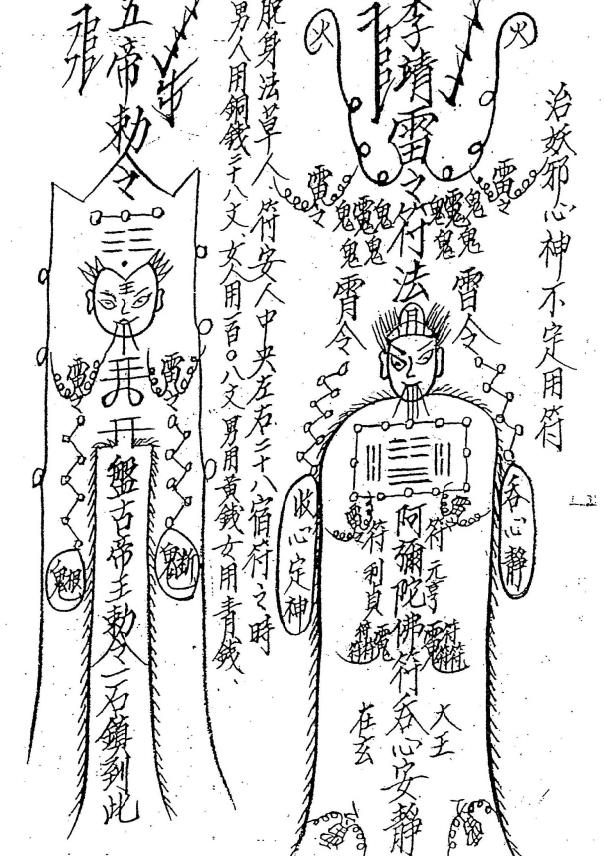 治妖邪心神不定人用符
火
火
李靖雷令符法
雷令
雷令
鬼
鬼
鬼
鬼
鬼
雷令
霄令
收心定神
吞心靜
阿彌陀佛符吞心安靜
符元亨
符利貞
大王
在玄
脫身法草人、符安人中央左右二十八宿符之時
男人用銅錢二十八文、女人用一百〇八文男用黃錢女用青錢、
五帝勅令
雷令
雷令
斬鬼
盤古帝王勅令一石鎖到此